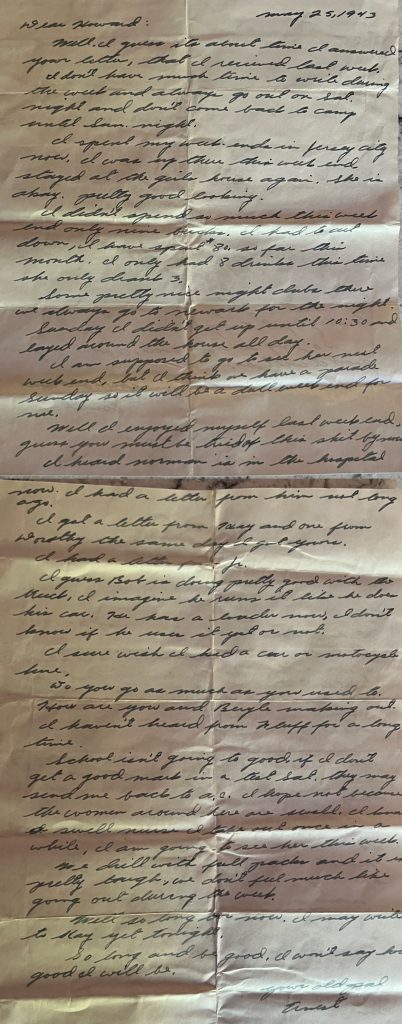 May 25, 1943
Dear Howard:
Well, I guess its about time I answered
your letter, that I recieved last week.
I don't have much time to write during
the week and always go out on Sat.
night and don't come back to camp
until Sun. night.
I spend my week ends in Jersey City
now. I was up there this week end
stayed at the girls house again. She is
okay. pretty good looking.
I didn't spend so much this week
end only nine bucks. I had to cut
down, I have spent 30. so far this
month. I only had 8 drinks this time
she only drank 3.
Some pretty nice night clubs there
we always go to Newark for the night.
Sunday I didn't get up until 10:30 and
layed around the house all day.
I am supposed to go to see her next
week end, but I think we have a parade
Sunday so it will be a dull week end for
me.
Well I enjoyed myself last week end,
guess you must be tired of this shit by now
I heard Norman is in the hospital
now. I had a letter from him not long
ago.
I got a letter from Kay and one from
Dorothy the same day I got yours.
I had a letter from Jr.
I guess Bob is doing pretty good with the
truck, I imagine he runs it like he does
his car. He has a loader now, I don't
know if he uses it yet or not.
I sure wish I had a car or motocycle
here.
Do you go as much as you used to.
How are you and making out.
I haven't heard from for a long
time.
School isn't going to good, if I don't
get a good mark in a test Sat. they may
send me back to I hope not because
the women around here are swell. I know
a swell nurse I take out once in a
while, I am going to see her this week.
We drill with full packs and it is
pretty tough, we don't feel much like
going out during the week.
Well so long for now. I may write
to Kay yet tonight.
So long and be good. I won't say how
good I will be.
your old pal
Ernest